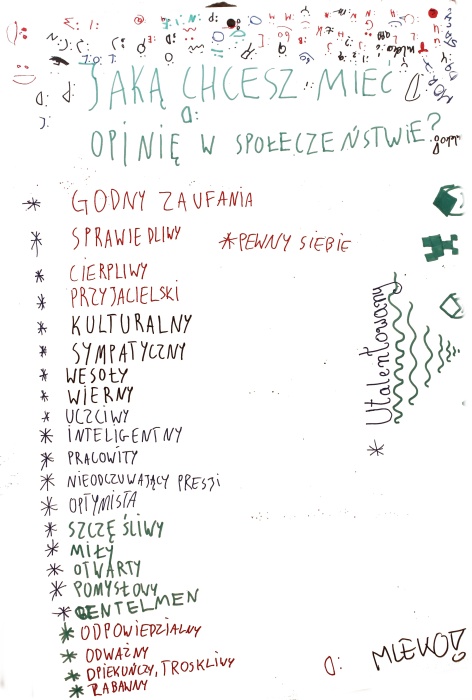 JAKĄ CHCESZ MIEĆ
D:
OPINIĘ W SPOŁECZEŃSTWIE?
* GODNY ZAUFANIA
* SPRAWIEDLIWY
* PEWNY SIEBIE
* CIERPLIWY
* PRZYJACIELSKI
* KULTURALNY
* SYMPATYCZNY
* WESOŁY
* WIERNY
* UCZCIWY
* INTELIGENTNY
* PRACOWITY
* NIEODCZUWAJĄCY PRESJI
* OPTYMISTA
* SZCZĘŚLIWY
* MIŁY
* OTWARTY
* POMYSŁOWY
* GENTELMEN
* ODPOWIEDZIALNY
* ODWAŻNY
* OPIEKUŃCZY, TROSKLIWY
* ZABAWNY
* Utalentowany
D:
MLEKO!